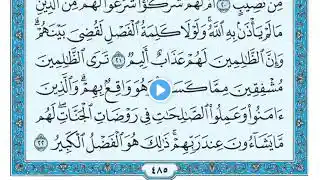 مِن نَّصِيبٍ ٢٠ أَمْ لَهُمْ شُرَكَٰٓؤُا۟ شَرَعُوا۟ لَهُم مِّنَ ٱلدِّينِ
مَا لَمْ يَأْذَنۢ بِهِ ٱللَّهُ وَلَوْلَا كَلِمَةُ ٱلْفَصْلِ لَقُضِىَ بَيْنَهُمْ
وَإِنَّ ٱلظَّٰلِمِينَ لَهُمْ عَذَابٌ أَلِيمٌ ٢١ تَرَى ٱلظَّٰلِمِينَ
مُشْفِقِينَ مِمَّا كَسَبُوا۟ وَهُوَ وَاقِعٌۢ بِهِمْ وَٱلَّذِينَ
ءَامَنُوا۟ وَعَمِلُوا۟ ٱلصَّٰلِحَٰتِ فِى رَوْضَاتِ ٱلْجَنَّاتِ لَهُم
مَّا يَشَآءُونَ عِندَ رَبِّهِمْ ذَٰلِكَ هُوَ ٱلْفَضْلُ ٱلْكَبِيرُ ٢٢
٤٨٥